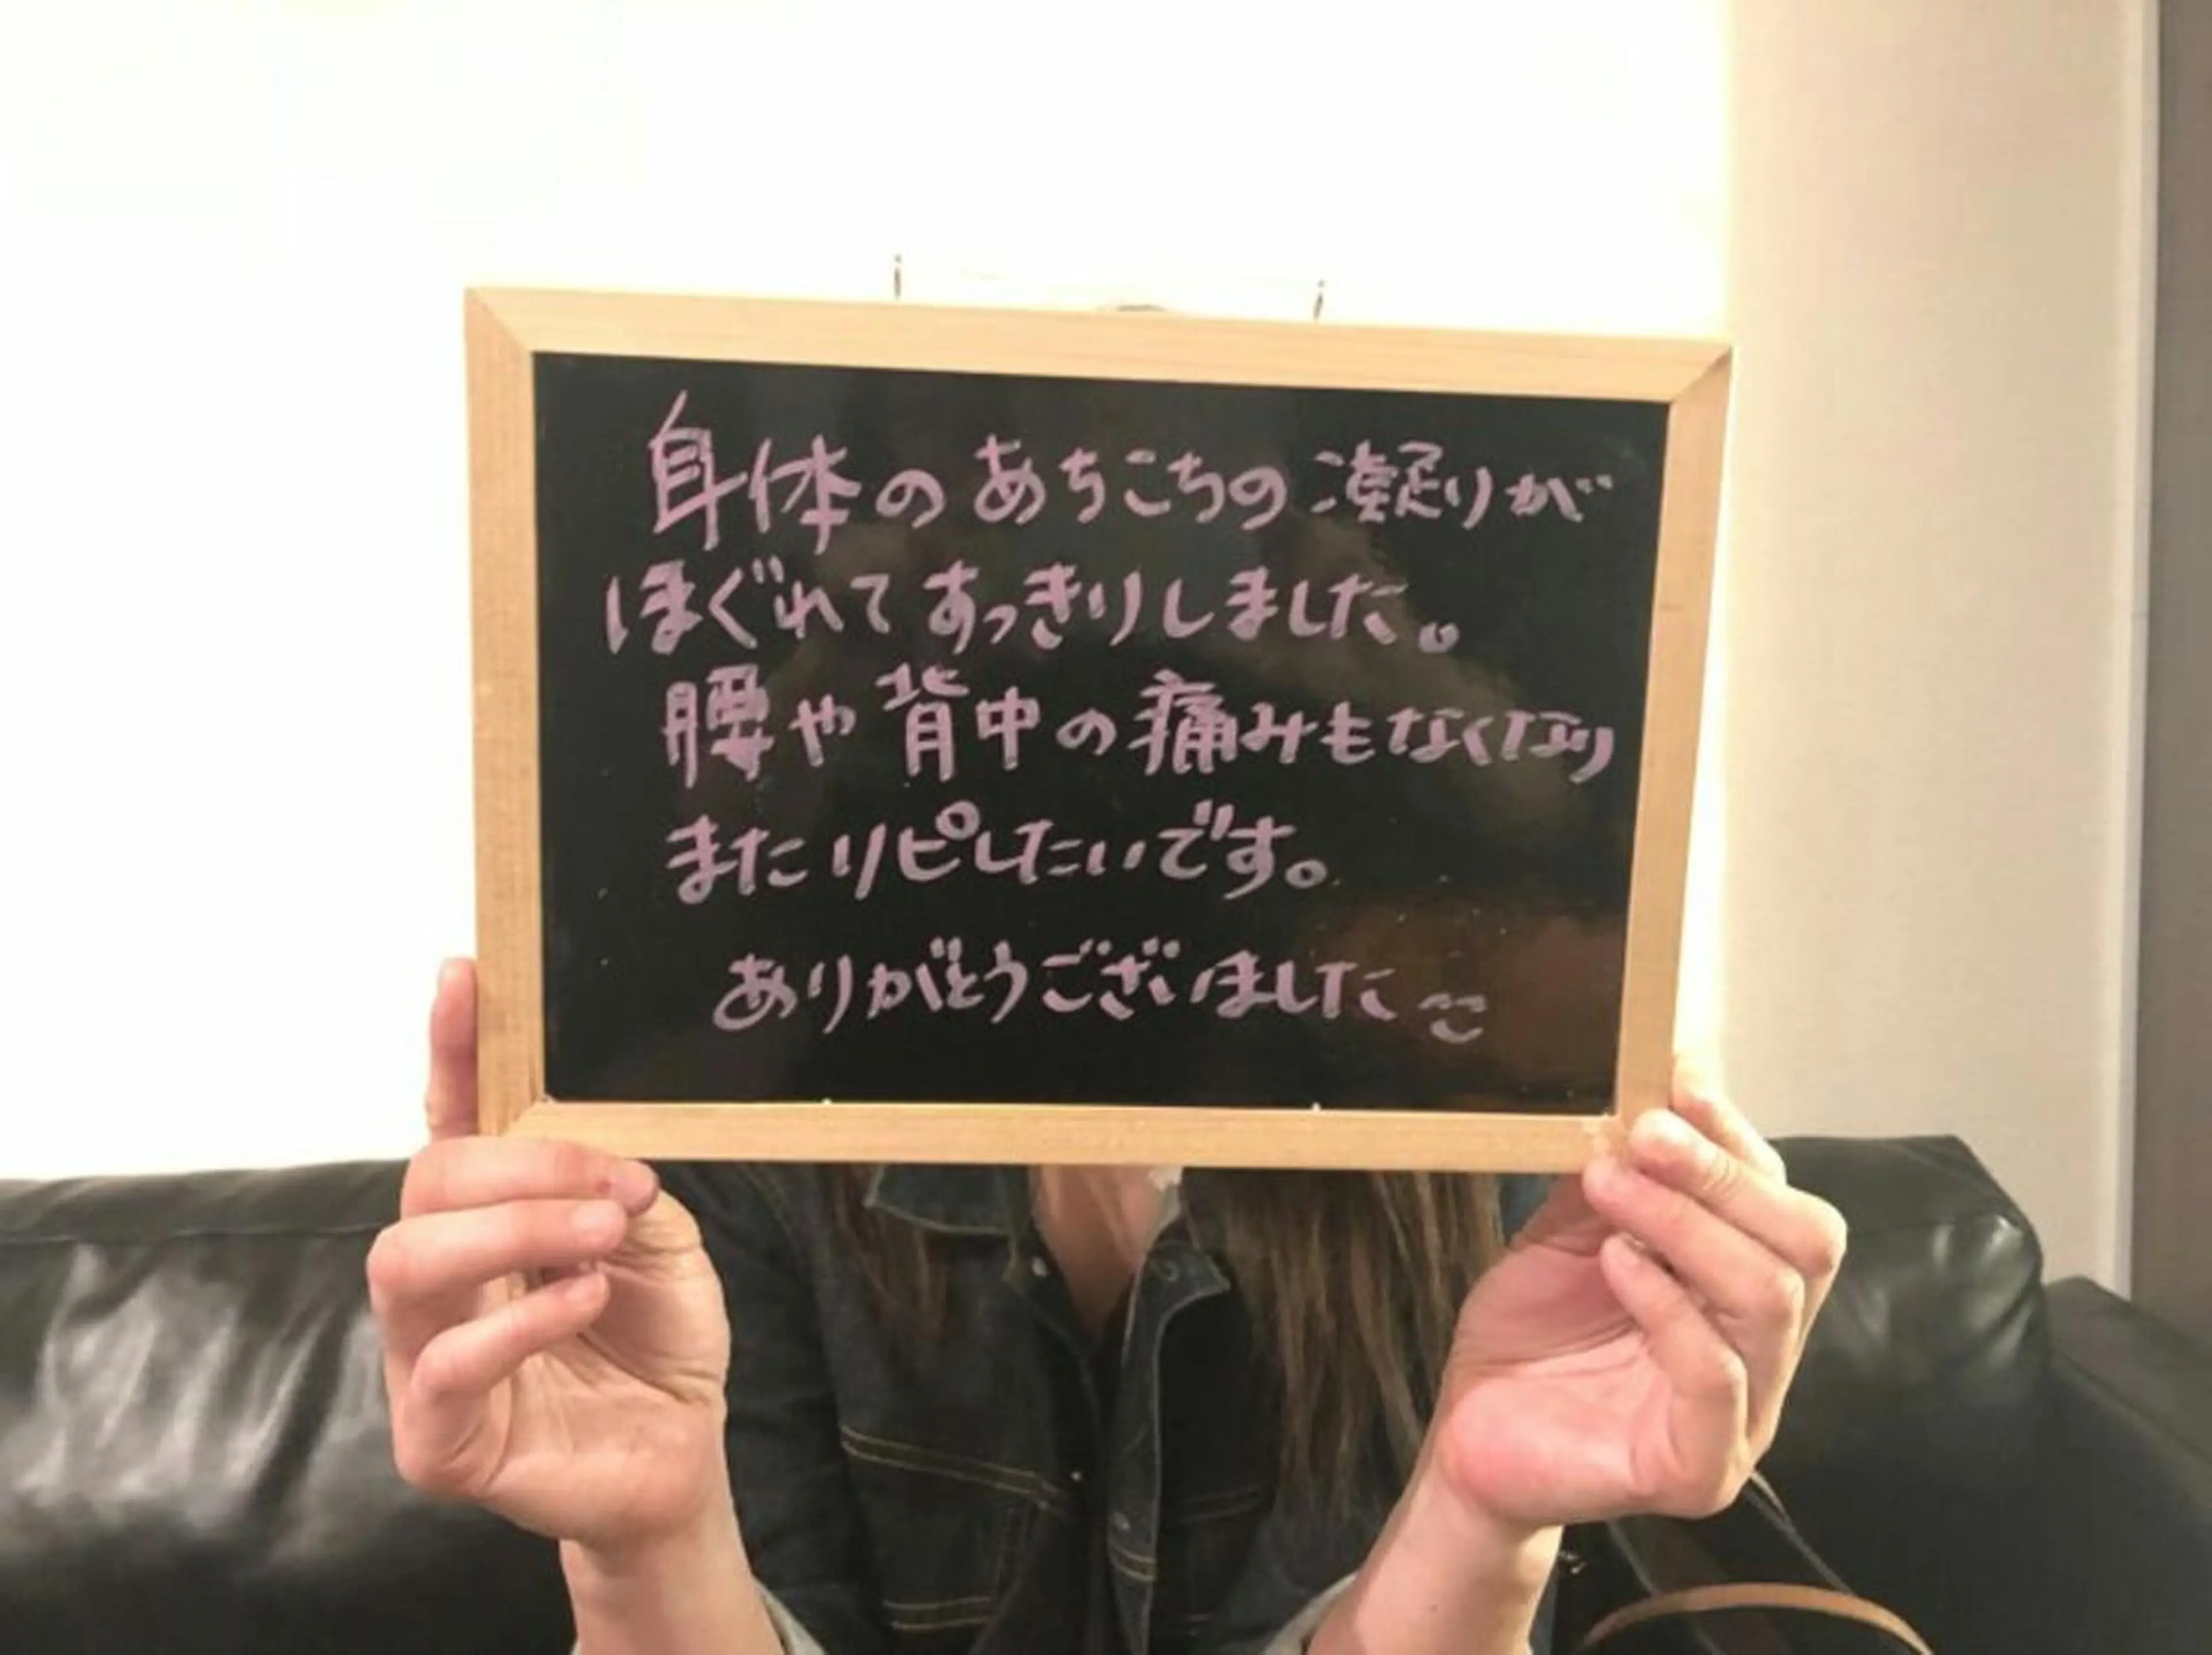 身体のあちこちの凝りが
ほぐれてすっきりしました。
腰や背中の痛みもなくなり
またリピしたいです。
ありがとうございました